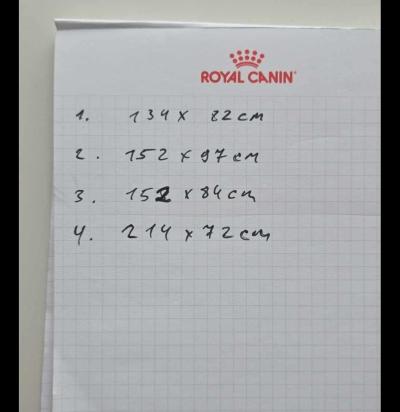 ROYAL CANIN
1. 134 x 82 cm
2. 152 x 97 cm
3. 152 x 84 cm
4. 214 x 72 cm